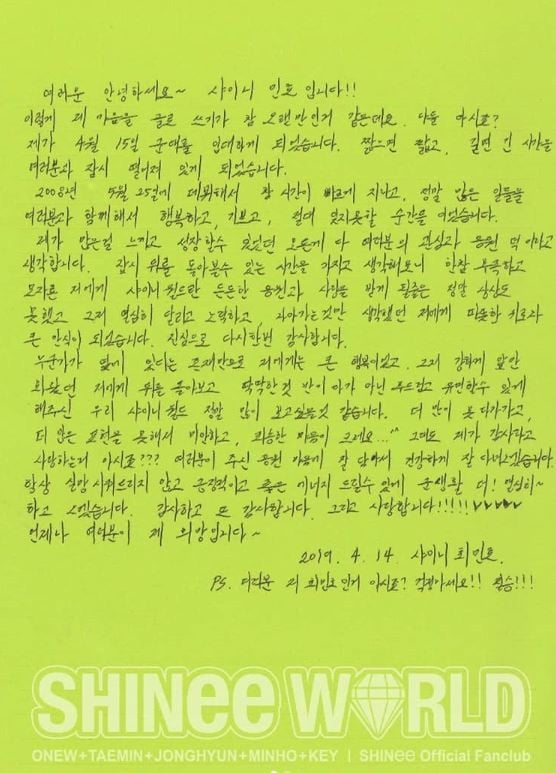 여러분 안녕하세요~ 샤이니 민호입니다!!
이렇게 제 마음을 글로 쓰기가 참 오랜만인거 같은데요. 다들 아시죠?
제가 4월 15일 군대를 입대하게 되었습니다. 짧으면 짧고, 길면 긴 시간을
여러분과 잠시 떨어져 있게 되었습니다.
2008년 5월 25일에 데뷔해서 참 시간이 빠르게 지나고, 정말 많은 일들을
여러분과 함께해서 행복하고, 기쁘고, 절대 잊지못할 순간들 이었습니다.
제가 많은걸 느끼고 성장할수 있었던 모든게 다 여러분의 관심과 응원 덕이라고
생각합니다. 잠시 뒤를 돌아볼수 있는 시간을 가지고 생각해보니 한참 부족하고
모자른 저에게 샤이니월드란 든든한 응원과 사랑을 받게 될줄은 정말 상상도
못했고 그저 열심히 달리고 노력하고, 나아가는것만 생각했던 저에게 따뜻한 위로와
큰 안식이 되었습니다. 진심으로 다시한번 감사합니다.
누군가가 옆에 있다는 존재만으로 저에게는 큰 행복이었고, 그저 강하게 앞만
봐왔던 저에게 뒤를 돌아보고 딱딱한것 만이 아닌 부드럽고 유연할수 있게
해주신 우리 샤이니월드 정말 많이 보고싶을것 같습니다. 더 많이 못 다가가고,
더 많은 표현을 못해서 미안하고, 죄송한 마음이 크네요...^^ 그래도 제가 감사하고
사랑하는거 아시죠??? 여러분이 주신 응원 마음에 잘 담아서 건강하게 잘 다녀오겠습니다.
항상 실망 시켜드리지 않고 긍정적이고 좋은 에너지 드릴수 있게 군생활 더! 열심히~
하고 오겠습니다. 감사하고 또 감사합니다. 그리고 사랑합니다!!!!! ♥♥♥♥♥
언제나 여러분이 제 희망입니다~
2019. 4. 14. 샤이니 최민호.
PS. 여러분 저 최민호인거 아시죠? 걱정마세요!! 필승!!!
SHINee WORLD
ONEW+TAEMIN+JONGHYUN+MINHO+KEY | SHINee Official Fanclub